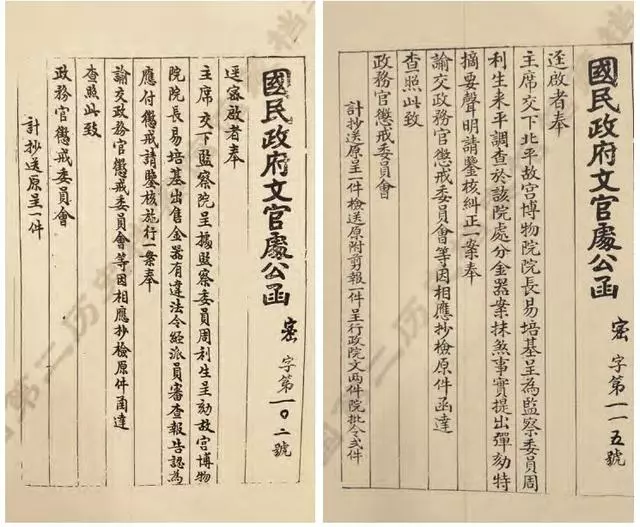 國民政府文官處公函 密字第一〇二號
逕密啟者奉
主席交下監察院呈據監察委員周利生呈劾故宮博物
院院長易培基出售金器有違法令經派員審查報告認為
應付懲戒請鑒核施行一案奉
諭交政務官懲戒委員會等因相應抄檢原件函達
查照此致
政務官懲戒委員會
計抄送原呈一件
國民政府文官處公函 密字第一一五號
逕啟者奉
主席交下北平故宮博物院院長易培基呈為監察委員周
利生来平調查於該院處分金器案抹煞事實提出彈劾特
摘要聲明請鑒核糾正一案奉
諭交政務官懲戒委員會等因相應抄檢原件函達
查照此致
政務官懲戒委員會
計抄送原呈一件檢送原附剪報一件呈行政院文兩件院批令弍件